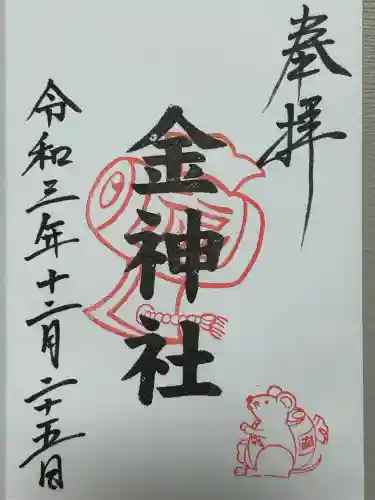 奉拝
金神社
令和三年十二月二十五日